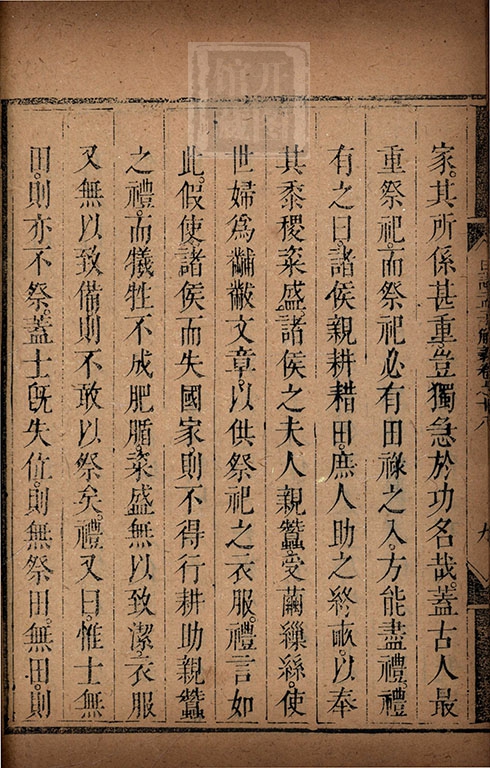 家。其所係甚重。豈獨急於功名哉。蓋古人最
重祭祀。而祭祀必有田祿之入。方能盡禮。禮
有之曰。諸侯親耕耤田。庶人助之終畝。以奉
其黍稷粢盛。諸侯之夫人親蠶。受繭繅絲。使
世婦爲黼黻文章。以供祭祀之衣服。禮言如
此。假使諸侯而失國家則不得行耕助親蠶
之禮。而犧牲不成肥腯。粢盛無以致潔。衣服
又無以致備則不敢以祭矣。禮又曰。惟士無
田。則亦不祭。蓋士旣失位。則無祭田。無田。則
日講四書解義卷之十八
九